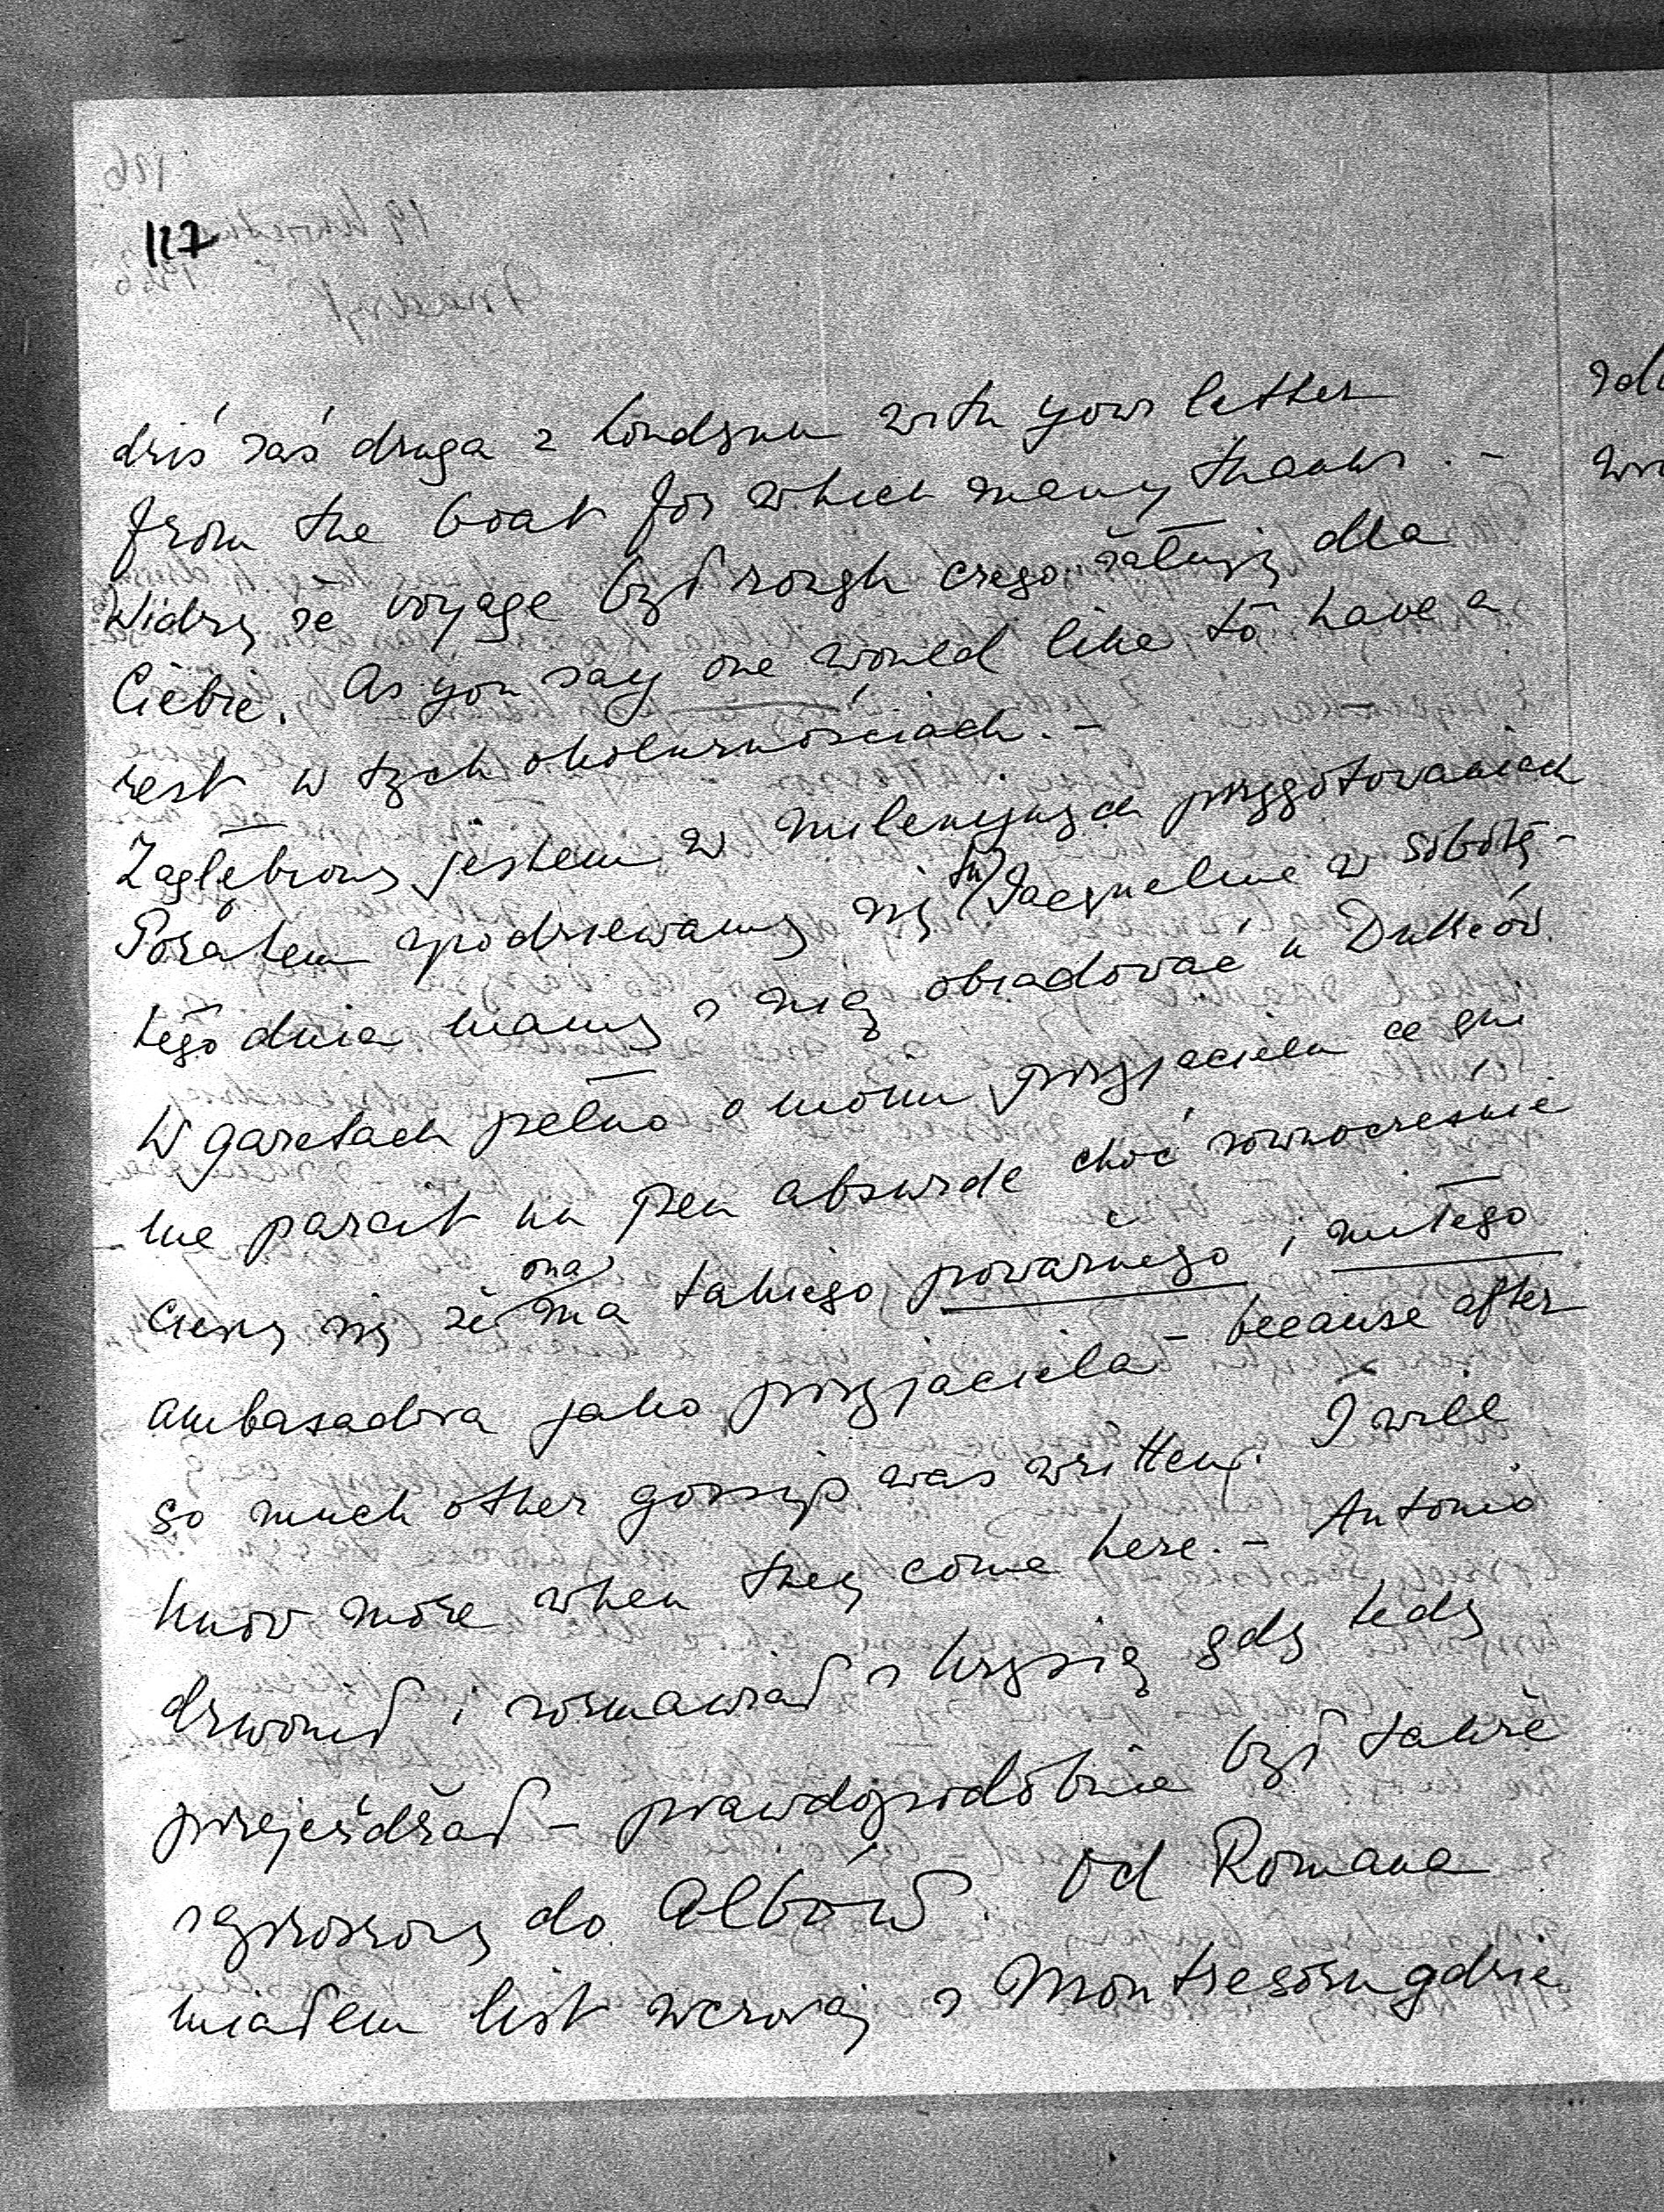 117
dziś zaś druga z Londynu with your letter
from the boat for which many thanks. -
Widzę że voyage był rough czego żałuję dla
Ciebie. As you say one would like to have a
rest w tych okolicznościach. -
Zagłębiony jestem w milenijnych przygotowaniach
Pozatem spodziewamy się tu Jacqueline w sobotę -
tego dnia mamy z nią obiadować u Duków.
W gazetach pełno o moim przyjacielu ce qui
me parait un peu absurde choć równocześnie
cieszę się że ona ma takiego poważnego i miłego
ambasadora jako przyjaciela - because after
so much other gossip was written. I will
know more when they come here. - Antonio
dzwonił i rozmawiał z Krysią gdy tędy
przejeżdżał - prawdopodobnie był także
zaproszony do Albów. Od Romana
miałem list wczoraj z Montresoru gdzie